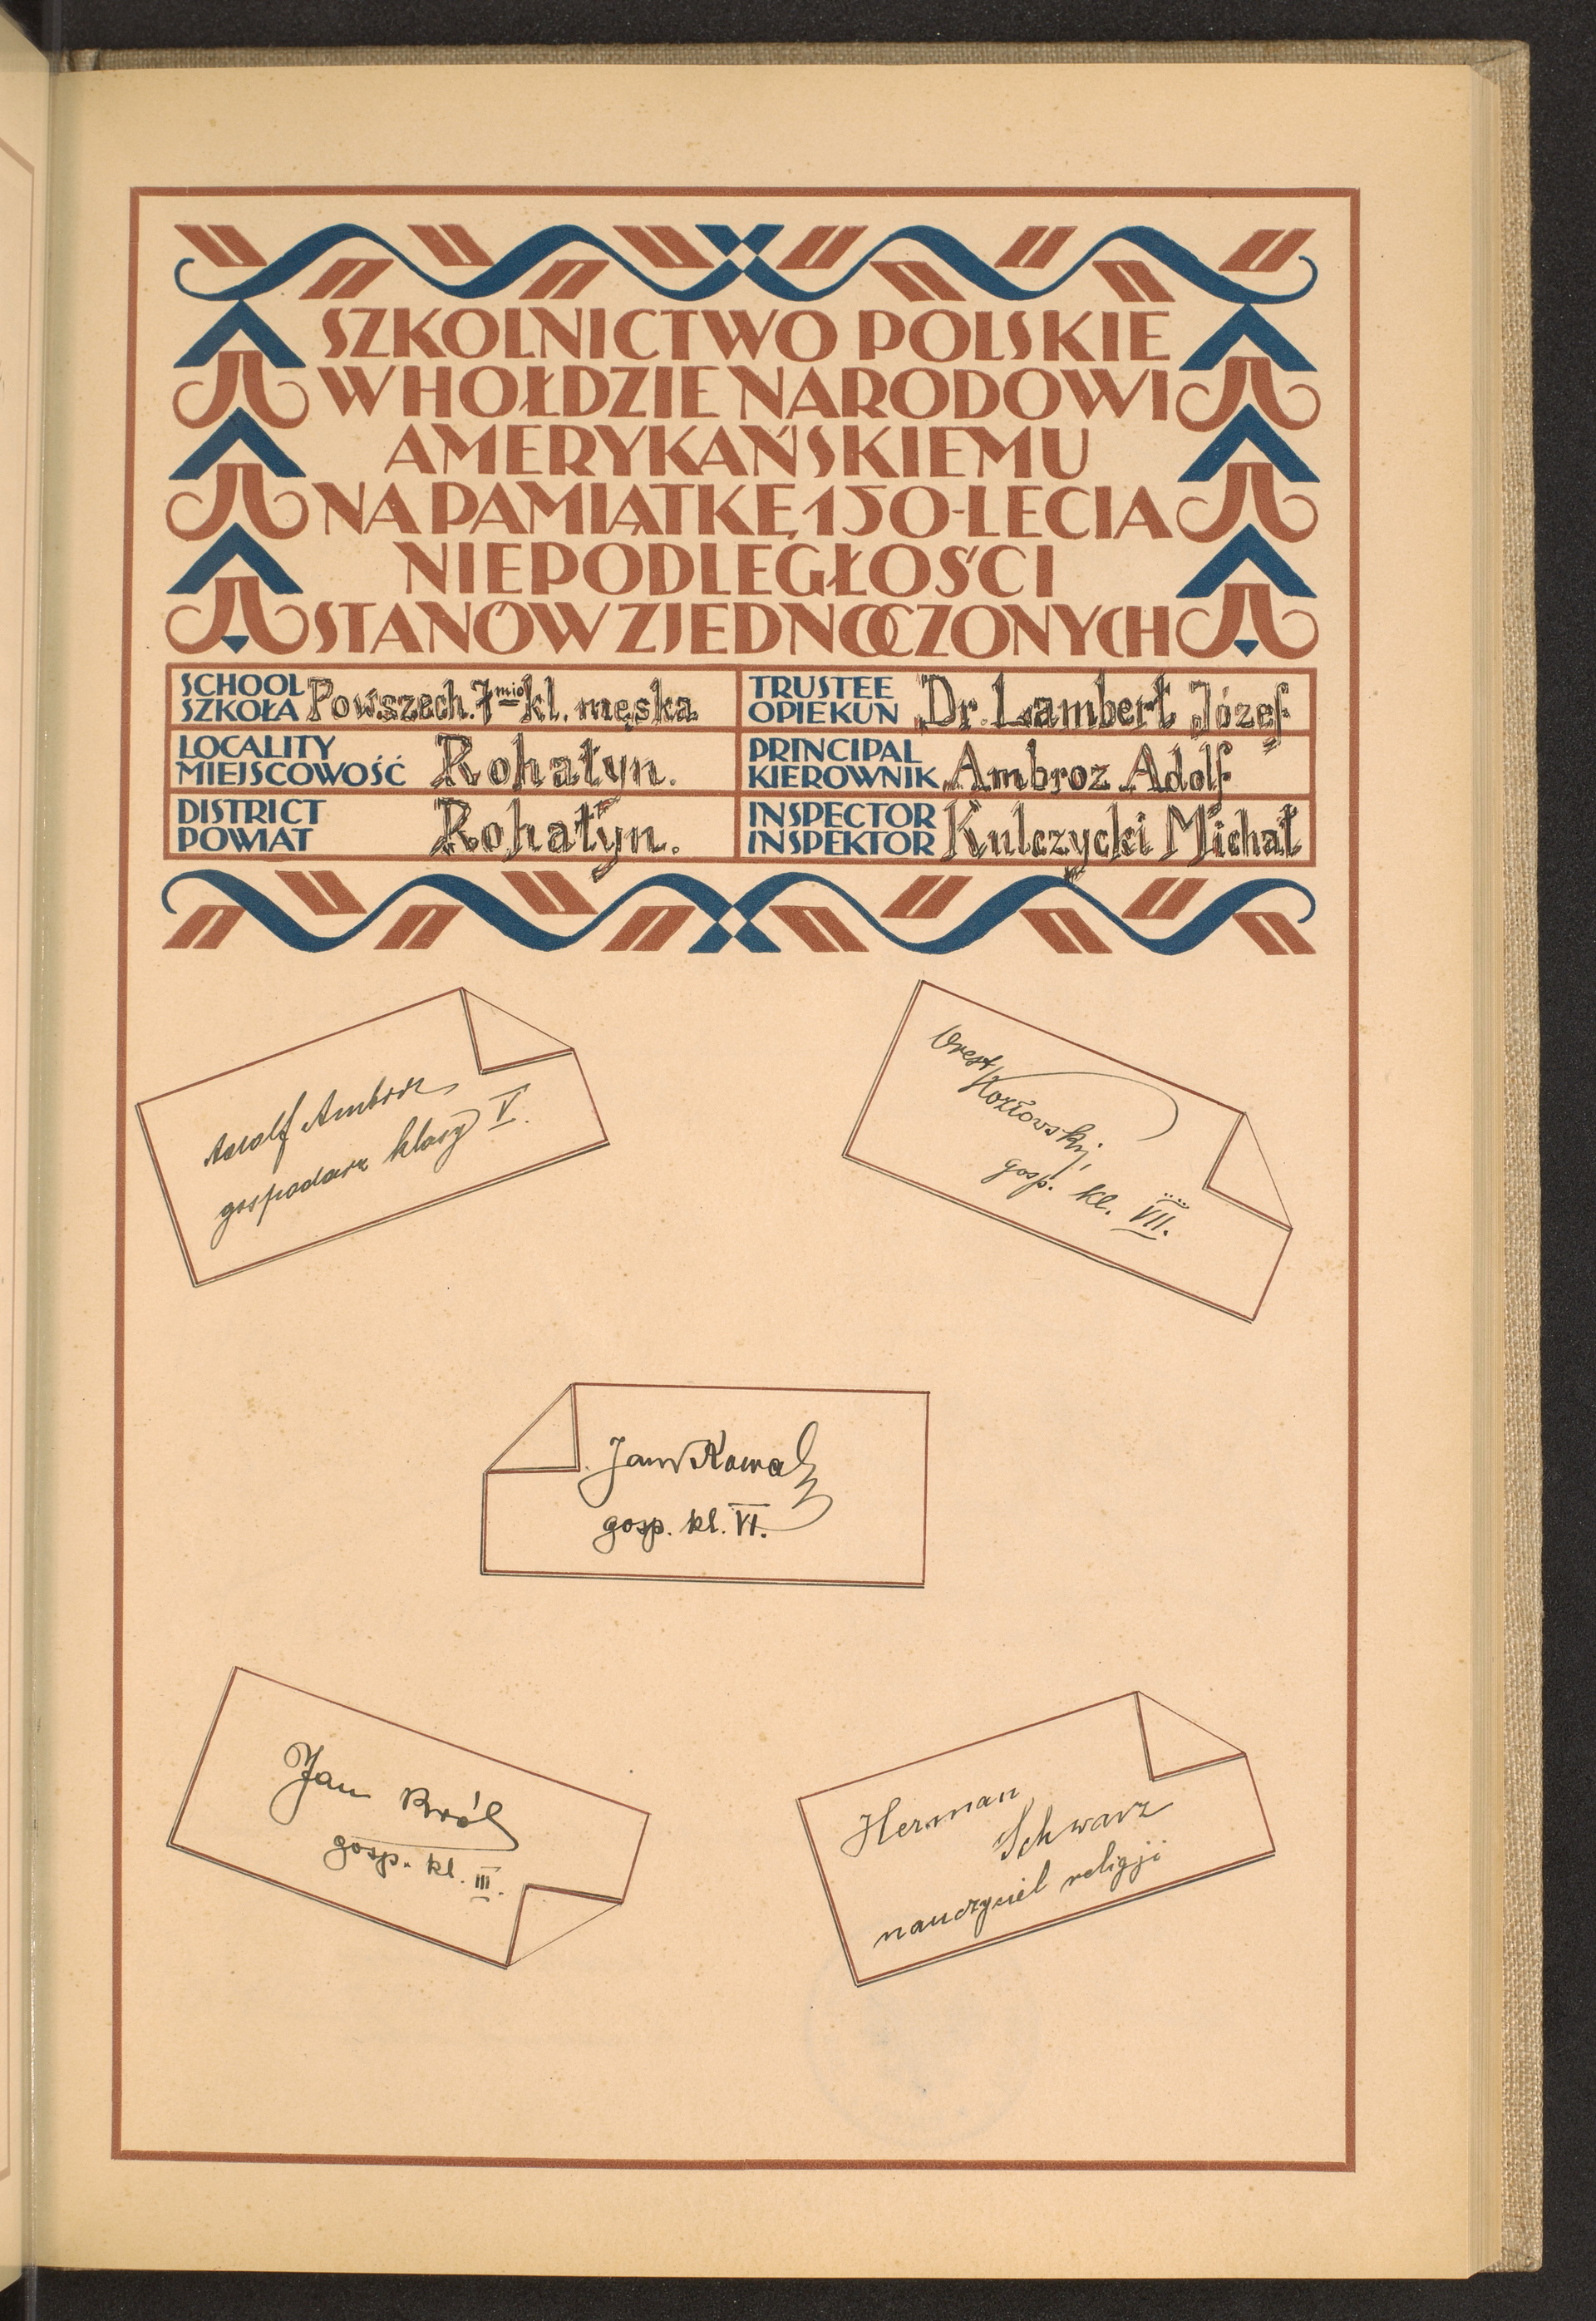 SZKOLNICTWO POLSKIE
W HOŁDZIE NARODOWI
AMERYKAŃSKIEMU
NA PAMIĄTKĘ 150-LECIA
NIEPODLEGŁOŚCI
STANÓW ZJEDNOCZONYCH
SCHOOL
SZKOŁA Powszech. 7mio kl. męska
LOCALITY
MIEJSCOWOŚĆ Rohatyn.
DISTRICT
POWIAT Rohatyn.
TRUSTEE
OPIEKUN Dr. Lambert Józef
PRINCIPAL
KIEROWNIK Ambroz Adolf
INSPECTOR
INSPEKTOR Kulczycki Michał
Adolf Ambroz
gospodarz klasy V.
Orest
Kozłowskij,
gosp. kl. VII.
Jan Kowal
gosp. kl. VI.
Jan Król
gosp. kl. III.
Herman
Schwarz
nauczyciel religji